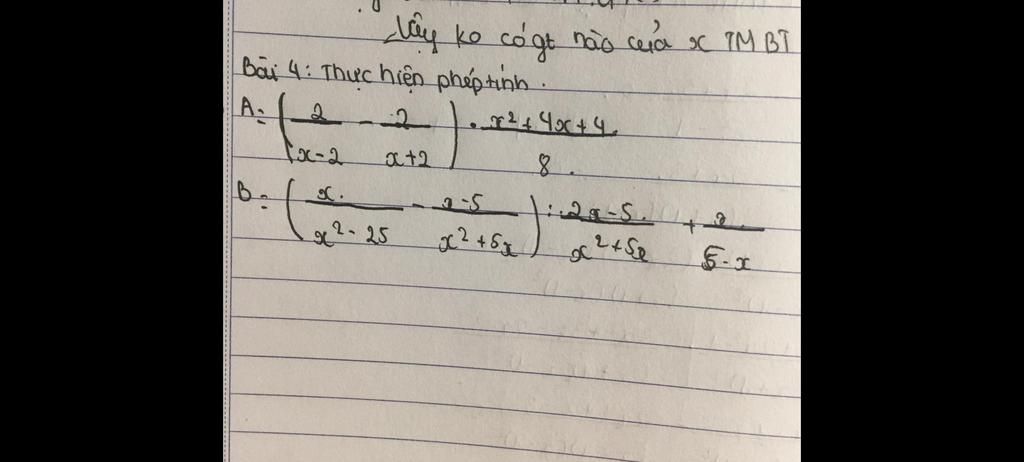 Vậy ko có gt nào của x TM BT
Bài 4: Thực hiện phép tính.
A = (2/(x-2) - 2/(x+2)) . (x²+4x+4)/8.
B = (x/(x²-25) - (x-5)/(x²+5x)) : (2x-5)/(x²+5x) + x/(5-x)